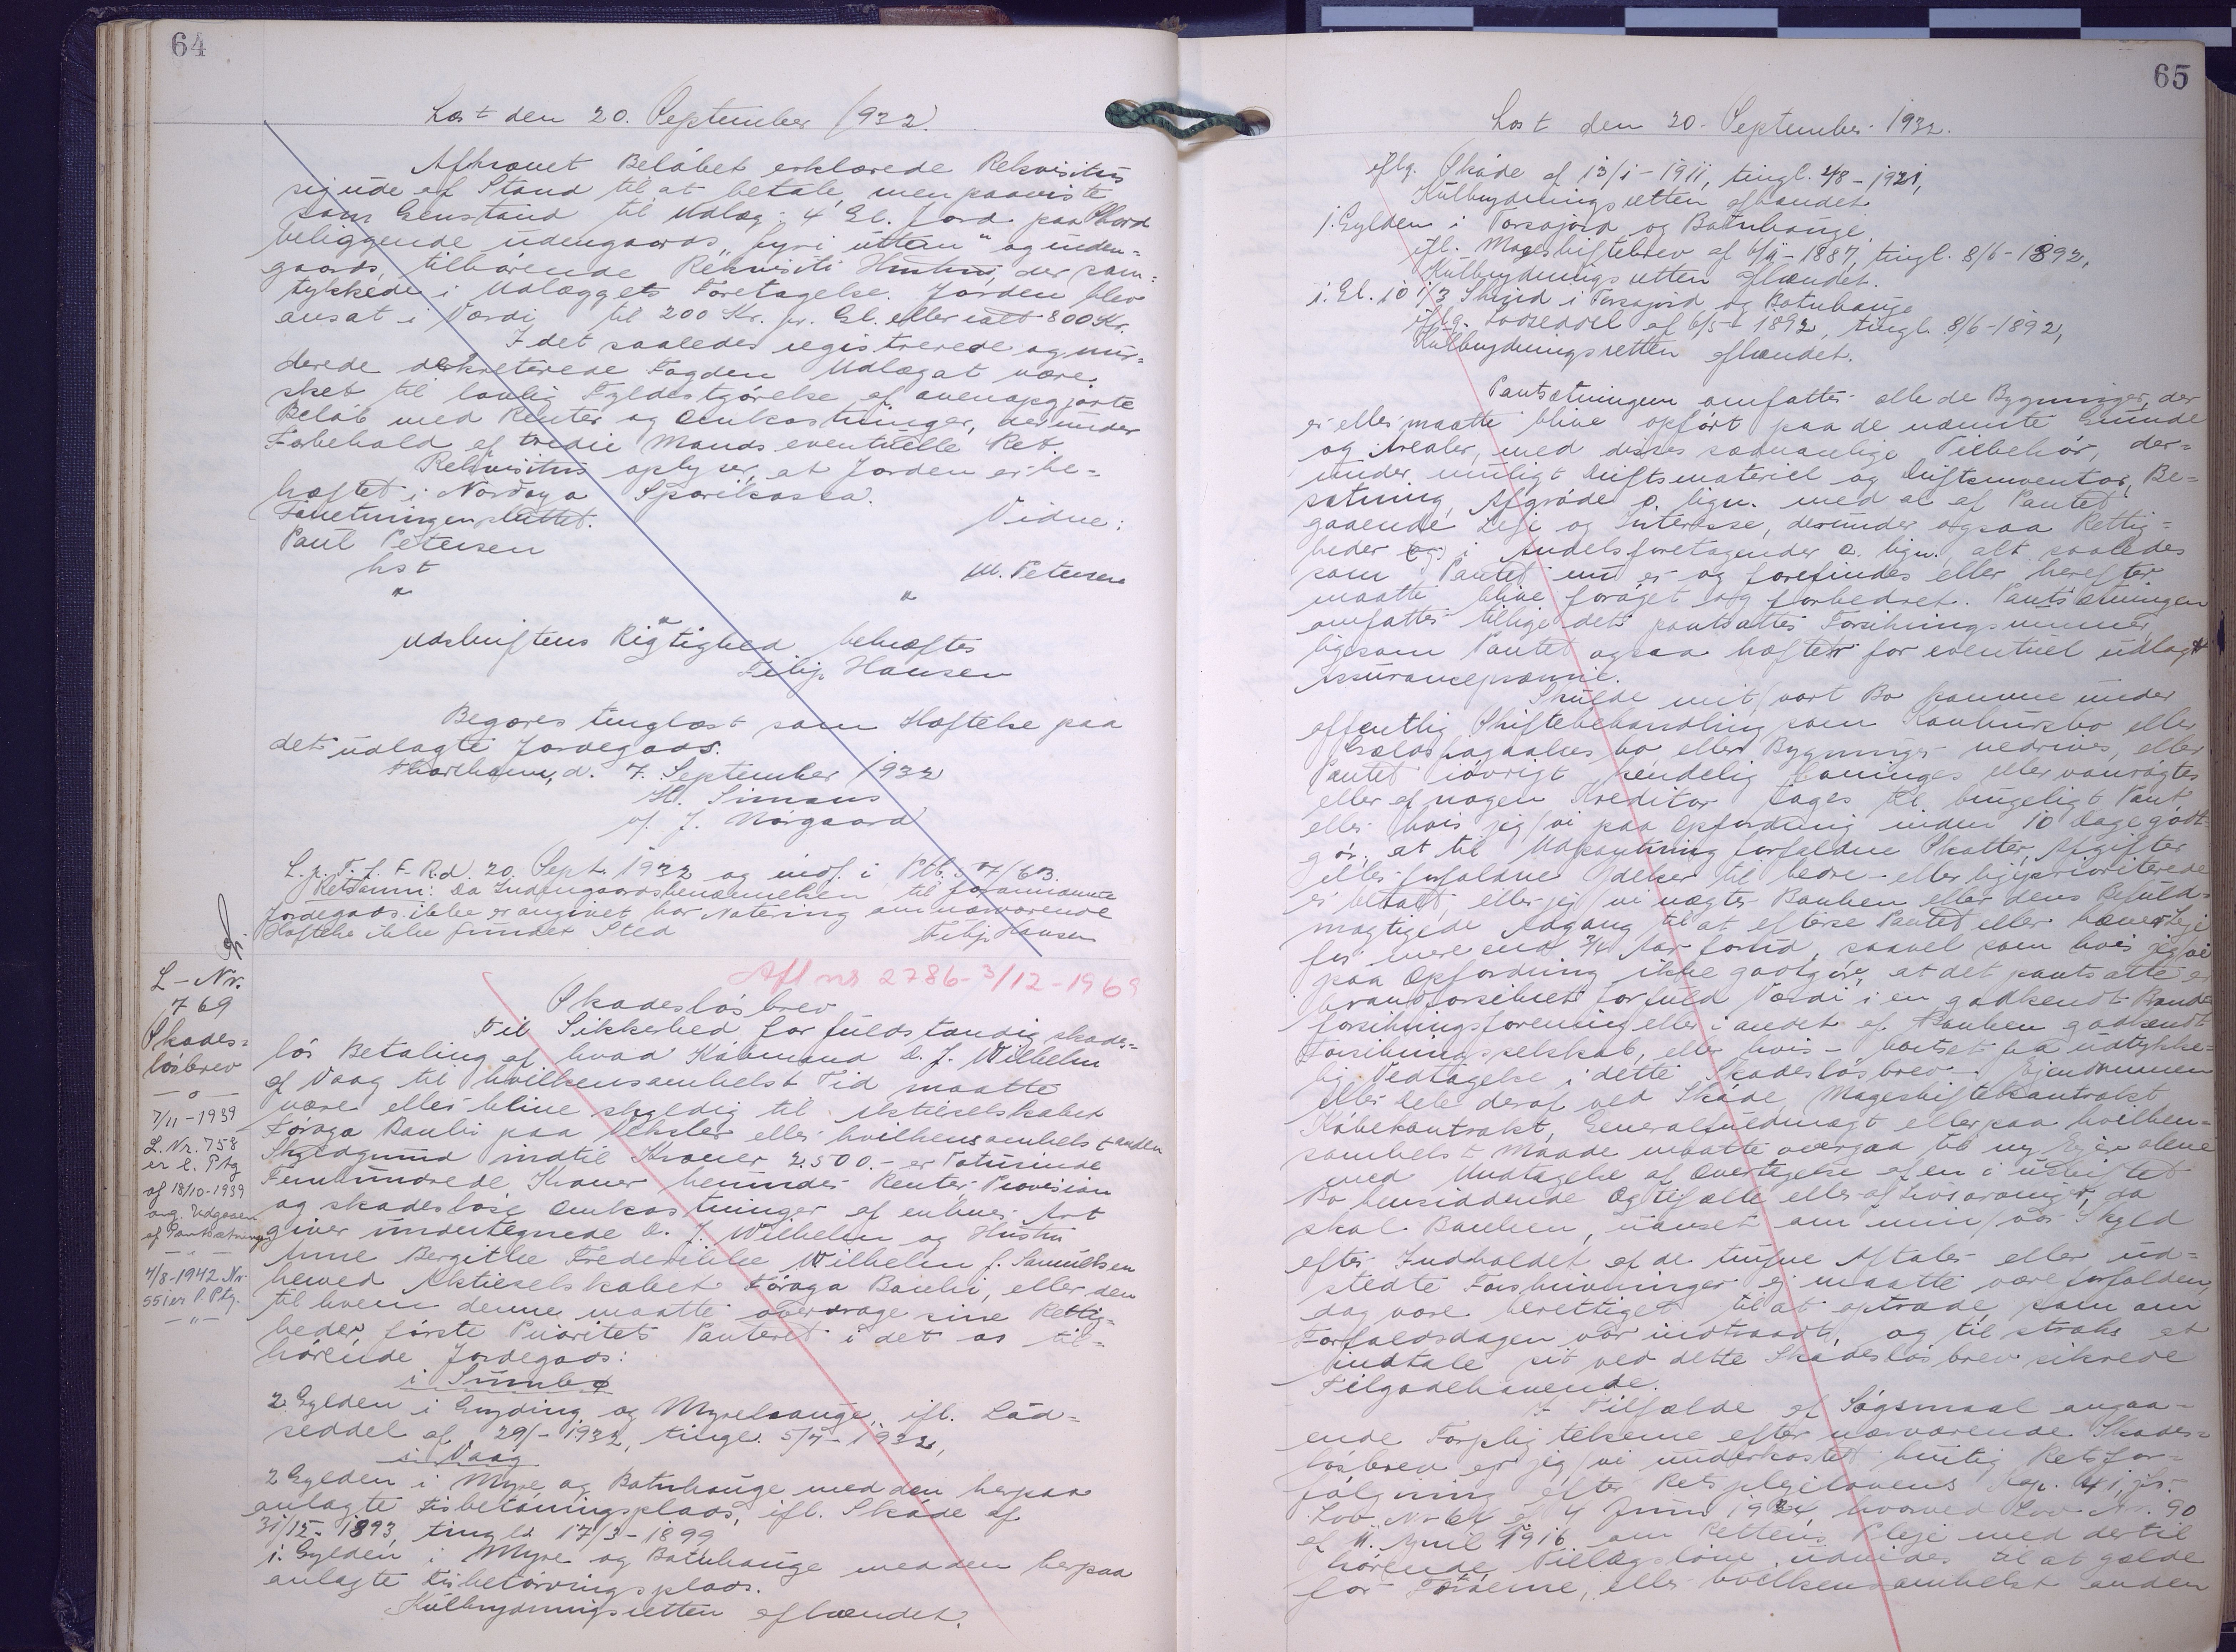 64
Læst den 20. September 1932.
Afkrævet Beløbet erklærede Rekvisitus
sig ude af Stand til at betale, men paaviste
som Genstand til Udlæg: 4 Gl. Jord paa
beliggende udengaards "býri uttan" og inden-
gaards, tilhørende Rekvisiti Hustru, der sam-
tykkede i Udlæggets Foretagelse. Jorden blev
ansat i Værdi til 200 Kr. pr. Gl. eller ialt 800 Kr.
I det saaledes registrerede og vur-
derede dekreterede Fogden Udlæg at være
sket til lovlig Fyldestgørelse af ovenopgjorte
Beløb med Renter og Omkostninger, derunder
Forbehold af tredie Mands eventuelle Ret.
Rekvisitus oplyser, at Jorden er be-
hæftet i Nordoya Sparikassa.
Forretningen sluttet.
Vidne:
Paul Petersen
kst
M. Petersen
"
"
"
Udskriftens Rigtighed bekræftes
Filip Hansen
Begæres tinglæst som Hæftelse paa
det udlagte Jordegods.
Thorshavn, d. 7. September 1932
H. Simans
v/ J. Nørgaard
L. p. T. f. F. R. d. 20. Sept. 1932 og indf. i Ptb. 57/63.
Retsanm: Da Indengaardsbenævnelsen til forannævnte
Jordegods ikke er angivet har Notering om nærværende
Hæftelse ikke fundet Sted
Filip Hansen
Afl nr 2786-3/12-1969
L-Nr.
769
Skades=
løsbrev
— o —
7/11-1939
L. Nr. 758
er l. Ptg
af 18/10-1939
ang. Udgaaen
af Pantsætning
— " —
4/8-1942 Nr.
551 er l. Ptg.
— " —
Skadesløsbrev
Til Sikkerhed for fuldstændig skades=
løs Betaling af hvad Købmand D. J. Wilhelm
af Vaag til hvilkensomhelst Tid maatte
være eller blive skyldig til Aktieselskabet
Føroya Banki paa Veksler eller hvilkensomhelst anden
Skyldgrund indtil Kroner 2.500.- er Totusinde
Femhundrede Kroner herunder Renter, Provision
og skadesløse Omkostninger af enhver Art
giver undertegnede D. J. Wilhelm og Hustru
Anne Bergithe Frederikke Wilhelm f. Samuelsen
herved Aktieselskabet Føroya Banki, eller den
til hvem denne maatte overdrage sine Rettig=
heder, første Prioritets Panteret i det os til=
hørende Jordegods:
i Sumbø
2 Gylden i Gryding og Myrehauge, ifl. Lod=
seddel af 29/ - 1932, tingl. 5/7-1932,
i Vaag
2 Gylden i Myre og Botnhauge med den herpaa
anlagte Fisketørringsplads, ifl. Skøde af
31/12-1893, tingl. 17/3-1899
1 Gylden i Myre og Botnhauge med den herpaa
anlagte Fisketørringsplads.
Kulbrydningsretten afhændet.
65
Læst den 20. September 1932.
iflg. Skøde af 13/1-1911, tingl. 4/8-1921,
Kulbrydningsretten afhændet.
1. Gylden i Torsajord og Botnhauge
ifl. Mageskiftebrev af 6/4-1887, tingl. 8/6-1892,
Kulbrydningsretten afhændet.
1. Gl. 10 1/3 Skind i Torsajord og Botnhauge
iflg. Lodseddel af 6/5-1892, tingl. 8/6-1892,
Kulbrydningsretten afhændet.
Pantsætningen omfatter alle de Bygninger, der
er eller maatte blive opført paa de nævnte Grunde
og Arealer, med disses sædvanlige Tilbehør, der=
under muligt Driftsmateriel og Driftsinventar, Be=
sætning, Afgrøde o. lign. med al af Pantet
gaaende Leje og Interesse, derunder ogsaa Rettig=
heder (og) i Andelsforetagender o. lign. alt saaledes
som Pantet nu er og forefindes eller herefter
maatte blive forøget og forbedret. Pantsætningen
omfatter tillige det pantsattes Forsikringssummer,
ligesom Pantet ogsaa hæfter for eventuel udlagt
Assurancepræmie.
Skulde mit/vort Bo komme under
offentlig Skiftebehandling som Konkursbo eller
Gældsfragaaelses bo, eller Bygninger nedrives, eller
Pantet iøvrigt kendelig forringes eller vanrøgtes
eller af nogen Kreditor tages til brugeligt Pant,
eller hvis jeg/vi paa Opfordring inden 10 Dage godt=
gør, at til Udpantning forfaldne Skatter, Afgifter
eller forfaldne Ydelser til bedre- eller ligeprioriterede
er betalt, eller jeg/vi nægter Banken eller dens Befuld=
mægtigede Adgang til at efterse Pantet eller hæver Leje
for mere end 3/4 Aar forud, saavel som hvis jeg/vi
paa Opfordring ikke godtgør, at det pantsatte er
brandforsikret for fuld Værdi i en godkendt Brand
forsikringsforening eller i andet af Banken godkendt
Forsikringsselskab, eller hvis - bortset fra udtrykke=
lig Vedtagelse i dette Skadesløsbrev - Ejendommen
eller Dele deraf ved Skøde, Mageskiftekontrakt
Købekontrakt, Generalfuldmagt eller paa hvilken=
somhelst Maade maatte overgaa til ny Ejer alene
med Undtagelse af Overtagelse af en i uskiftet
Bo hensiddende Ægtefælle eller af Livsarvinger, da
skal Banken, uanset om min/vor Skyld
efter Indholdet af de trufne Aftaler eller ud=
stedte Forskrivninger ej maatte være forfalden,
dog være berettiget til at optræde, som om
Forfaldsdagen var indtraadt, og til straks at
indtale sit ved dette Skadesløsbrev sikrede
Tilgodehavende.
I Tilfælde af Søgsmaal angaa=
ende Forpligtelserne efter nærværende Skades=
løsbrev er jeg/vi underkastet hurtig Retsfor=
følgning efter Retsplejelovens Kap. 41, jfr.
Lov Nr. 64 af 4 Juni 1924, hvorved Lov Nr. 90
af 11. April 1916 om Rettens Pleje med dertil
hørende Tillægslove udvides til at gælde
for Færøerne, eller hvilkensomhelst anden